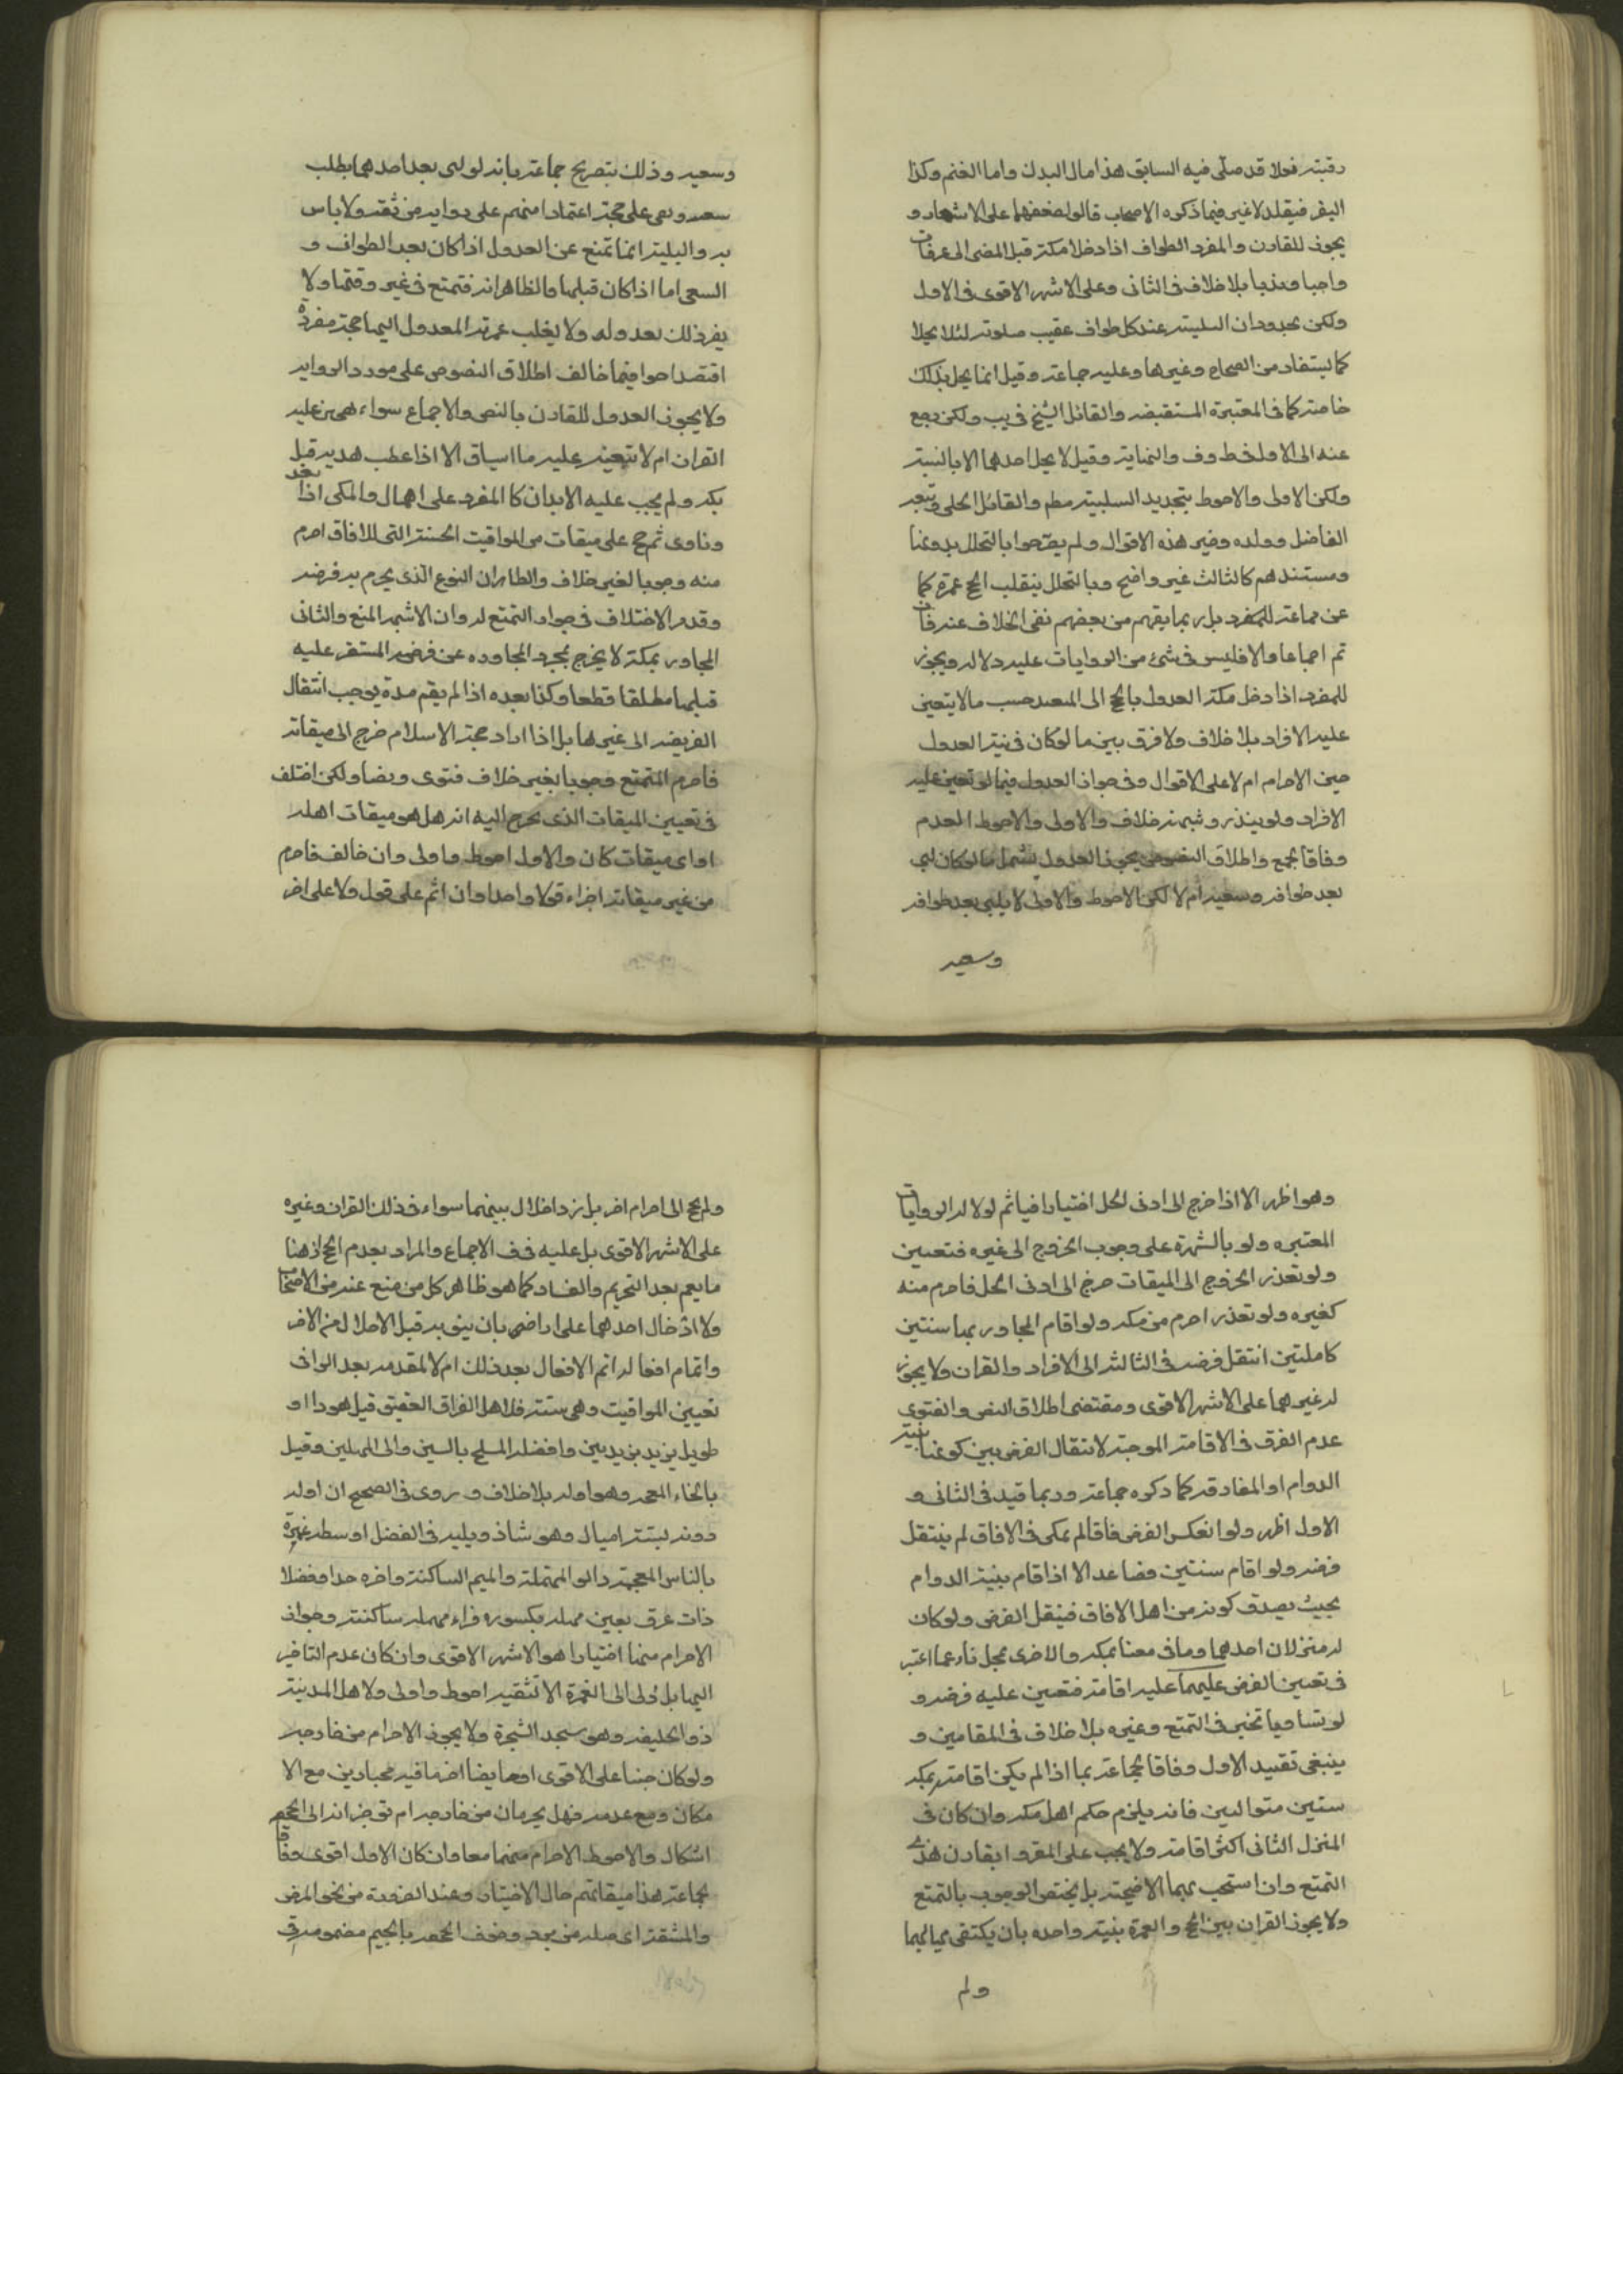 رقبته نعلا قد صلى فيه السابق هذا مال البدن واما الغنم وكذا
البقر فيقلد لا غير فيما ذكره الاصحاب قالوا لضعفهما على الاشعار و
يجوز للقارن والمفرد الطواف اذا دخلا مكة قبل المضى الى عرفات
واجبا وندبا بلا خلاف فى الثانى وعلى الاشهر الاقوى فى الاول
ولكن يجددان التلبية عند كل طواف عقيب صلوته لئلا يحلا
كما يستفاد من الصحاح وغيرها وعليه جماعة وقيل انما يحل بذلك
خاصة كما فى المعتبرة المستفيضة والقائل الشيخ فى يب ولكن رجع
عنه الى الاول فى ط وف والنهاية وقيل لا يحل احدهما الا بالنية
ولكن الاولى والاحوط تجديد التلبية مطم والقائل الحلى وتبعه
الفاضل وولده وغير هذه الاقوال ولم يصرحوا بالتحلل بدونها
ومستندهم كالثالث غير واضح وبالتحلل ينقلب الحج عمرة كما
عن جماعة للمفرد بل ربما يفهم من بعضهم نفى الخلاف عنه فان
تم اجماعا والا فليس فى شئ من الروايات عليه دلالة ويجوز
للمفرد اذا دخل مكة العدول بالحج الى المتعة حسب ما لا يتعين
عليه الافراد بلا خلاف ولا فرق بين ما لو كان فى نية العدول
حين الاحرام ام لا على الاقوال وفى جواز العدول فيما لو تعين عليه
الافراد ولو بنذر وشبهه خلاف والاولى والاحوط العدم
وفاقا لجمع واطلاق النصوص بجواز العدول يشمل ما لو كان لبى
بعد طوافه وسعيه ام لا لكن الاحوط والاولى لا يلبى بعد طوافه
وسعيه
وسعيه وذلك بتصريح جماعة بانه لو لبى بعد احدهما بطلت
متعته وبقى على حجته اعتمادا منهم على رواية موثقة ولا باس
به والتلبية انما تمنع عن العدول اذا كان بعد الطواف و
السعى اما اذا كان قبلهما والظاهر انه فتمتع فى غير وقتها ولا
يضر ذلك بعدوله ولا يقلب عمرته المعدول اليها حجة مفردة
اقتصارا فيما خالف اطلاق النصوص على مورد الرواية
ولا يجوز العدول للقارن بالنص والاجماع سواء تعين عليه
القران ام لا يتعين عليه ما اساق الا اذا عطب هديه قبل
مكة ولم يجب عليه الابدال كالمفرد على اهمال والمكى اذا بعد
وناوى ثم حج على ميقات من المواقيت الخمسة التى للافاق احرم
منه وجوبا لغير خلاف والظاهر ان النوع الذى يحرم به فرضه
وقدم الاختلاف فى جواز التمتع له وان الاشهر المنع والثانى
المجاور بمكة لا يخرج بمجرد المجاوره عن فرضه المستقر عليه
قبلها مطلقا قطعا وكذا بعده اذا لم يقم مدة يوجب انتقال
الفريضة الى غيرها بل اذا اراد حجة الاسلام خرج الى ميقاته
فاحرم المتمتع وجوبا بغير خلاف فتوى ونصا ولكن اختلف
فى تعيين الميقات الذى يخرج اليه انه هل هو ميقات اهله
او اى ميقات كان والاول احوط واولى وان خالف فاحرم
من غير ميقاته اجزاء قولا واحدا وان اثم على قول ولا على اخر
وهو اظهر الا اذا خرج الى ادنى الحل اختيارا فياثم لدلالة الروايات
المعتبره ولو بالشهرة على وجوب الخروج الى غيره فتعين
ولو تعذر الخروج الى الميقات خرج الى ادنى الحل فاحرم منه
كغيره ولو تعذر احرم من مكه ولو اقام المجاور بها سنتين
كاملتين انتقل فرضه فى الثالثة الى الافراد والقران ولا يجوز
له غيرهما على الاشهر الاقوى ومقتضى اطلاق النص والفتوى
عدم الفرق فى الاقامة الموجبة لانتقال الفرض بين كونها بنية
الدوام او المفارقة كما ذكره جماعة وربما قيد فى الثانى و
الاول اظهر ولو انعكس الفرض فاقام المكى فى الافاق لم ينتقل
فرضه ولو اقام سنتين فصاعدا الا اذا اقام بنية الدوام
بحيث يصدق كونه من اهل الافاق فينقل الفرض ولو كان
له منزلان احدهما وما فى معناه بمكه والاخرى بمحل ناء عنها اعتبر
فى تعيين الفرض عليهما عليه اقامة فتعين عليه فرضه و
لو تساويا تخير فى التمتع وغيره بلا خلاف فى المقامين و
ينبغى تقييد الاول وفاقا لجماعة بما اذا لم يكن اقامته بمكه
سنتين متواليين فانه يلزم حكم اهل مكه وان كان فى
المنزل الثانى اكثر اقامة ولا يجب على المفرد القارن هذى
التمتع وان استحب بهما الاضحية بل يختص الوجوب بالتمتع
ولا يجوز القران بين الحج والعمرة بنية واحده بان يكتفى بها لهما
ولم
ولم يحج الى احرام اخر بل نرد اخلال بينهما سواء فى ذلك القران وغيره
على الاشهر الاقوى بل عليه فى ف الاجماع والمراد بعدم الحج اذ هنا
ما يعم بعد التحريم والفساد كما هو ظاهر كل من منع عنه من الاصحاب
ولا ادخال احدهما على اراضى بان ينوى به قبل الاحلال من الاخر
واتمام افعاله اتم الافعال بعد ذلك ام لا المقدمه بعد الوافى
تعيين المواقيت وهى ستة فلاهل العراق العقيق قيل هو داء و
طويل يزيد بزيدين وافضله المسلح بالسين والحاء المهملين وقيل
بالخاء المعجمه وهو اوله بلا خلاف وروى فى الصحيح ان اوله
دونه بستة اميال وهو شاذ ويليه فى الفضل اوسطه غمرة
بالغاس المعجمة والراء المهملة والميم الساكنة واخره حدا وفضلا
ذات عرق بعين مهملة مكسوره فراء مهملة ساكنة وجواز
الاحرام منها اختيارا هو الاشهر الاقوى وان كان عدم التاخير
اليها بل ولى الى الغمرة الا لتقية احوط واولى ولاهل المدينة
ذو الحليفة وهو مسجد الشجرة ولا يجوز الاحرام من خارجه
ولو كان جنبا على الاقوى او حايضا احرما فيه مجتازين مع الا
مكان ومع عدمه فهل يحرمان من خارجه ام توخرانه الى الجحفه
اشكال والاحوط الاحرام منهما معا وان كان الاول اقوى وفاقا
لجماعة هذا ميقاتهم حال الاختيار وعند الضرورة من نحو المرض
والمشقة اى صلة من برد وخوف الجحفه بالجيم مضمومه ق